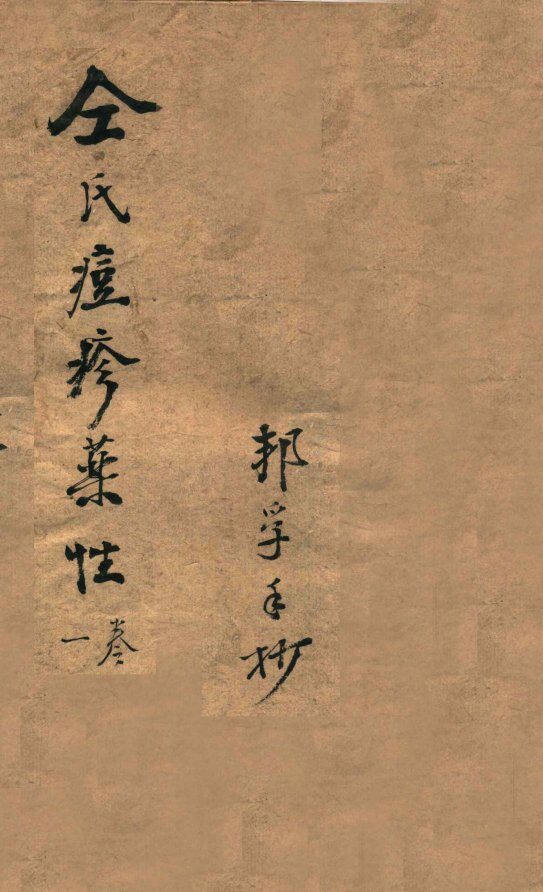 邦孚手抄
仝氏痘疹薬性
一卷